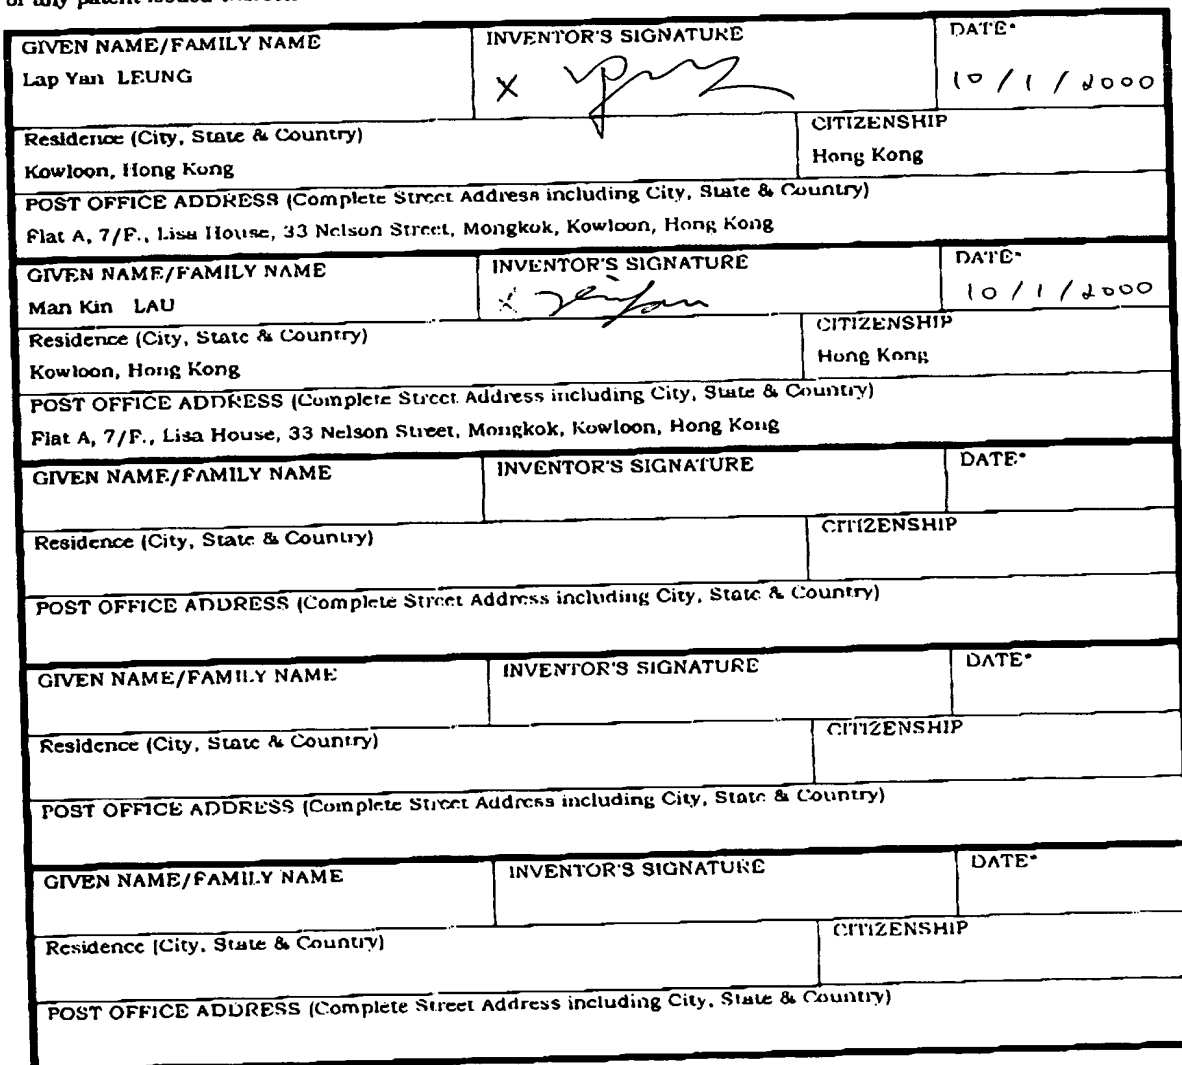 of any patent issued thereon
GIVEN NAME/FAMILY NAME INVENTOR'S SIGNATURE DATE*
Lap Yan LEUNG X 10/1/2000
Residence (City, State & Country) CITIZENSHIP
Kowloon, Hong Kong Hong Kong
POST OFFICE ADDRESS (Complete Street Address including City, State & Country)
Flat A, 7/F., Lisa House, 33 Nelson Street, Mongkok, Kowloon, Hong Kong
GIVEN NAME/FAMILY NAME INVENTOR'S SIGNATURE DATE*
Man Kin LAU X 10/1/2000
Residence (City, State & Country) CITIZENSHIP
Kowloon, Hong Kong Hong Kong
POST OFFICE ADDRESS (Complete Street Address including City, State & Country)
Flat A, 7/F., Lisa House, 33 Nelson Street, Mongkok, Kowloon, Hong Kong
GIVEN NAME/FAMILY NAME INVENTOR'S SIGNATURE DATE*
Residence (City, State & Country) CITIZENSHIP
POST OFFICE ADDRESS (Complete Street Address including City, State & Country)
GIVEN NAME/FAMILY NAME INVENTOR'S SIGNATURE DATE*
Residence (City, State & Country) CITIZENSHIP
POST OFFICE ADDRESS (Complete Street Address including City, State & Country)
GIVEN NAME/FAMILY NAME INVENTOR'S SIGNATURE DATE*
Residence (City, State & Country) CITIZENSHIP
POST OFFICE ADDRESS (Complete Street Address including City, State & Country)